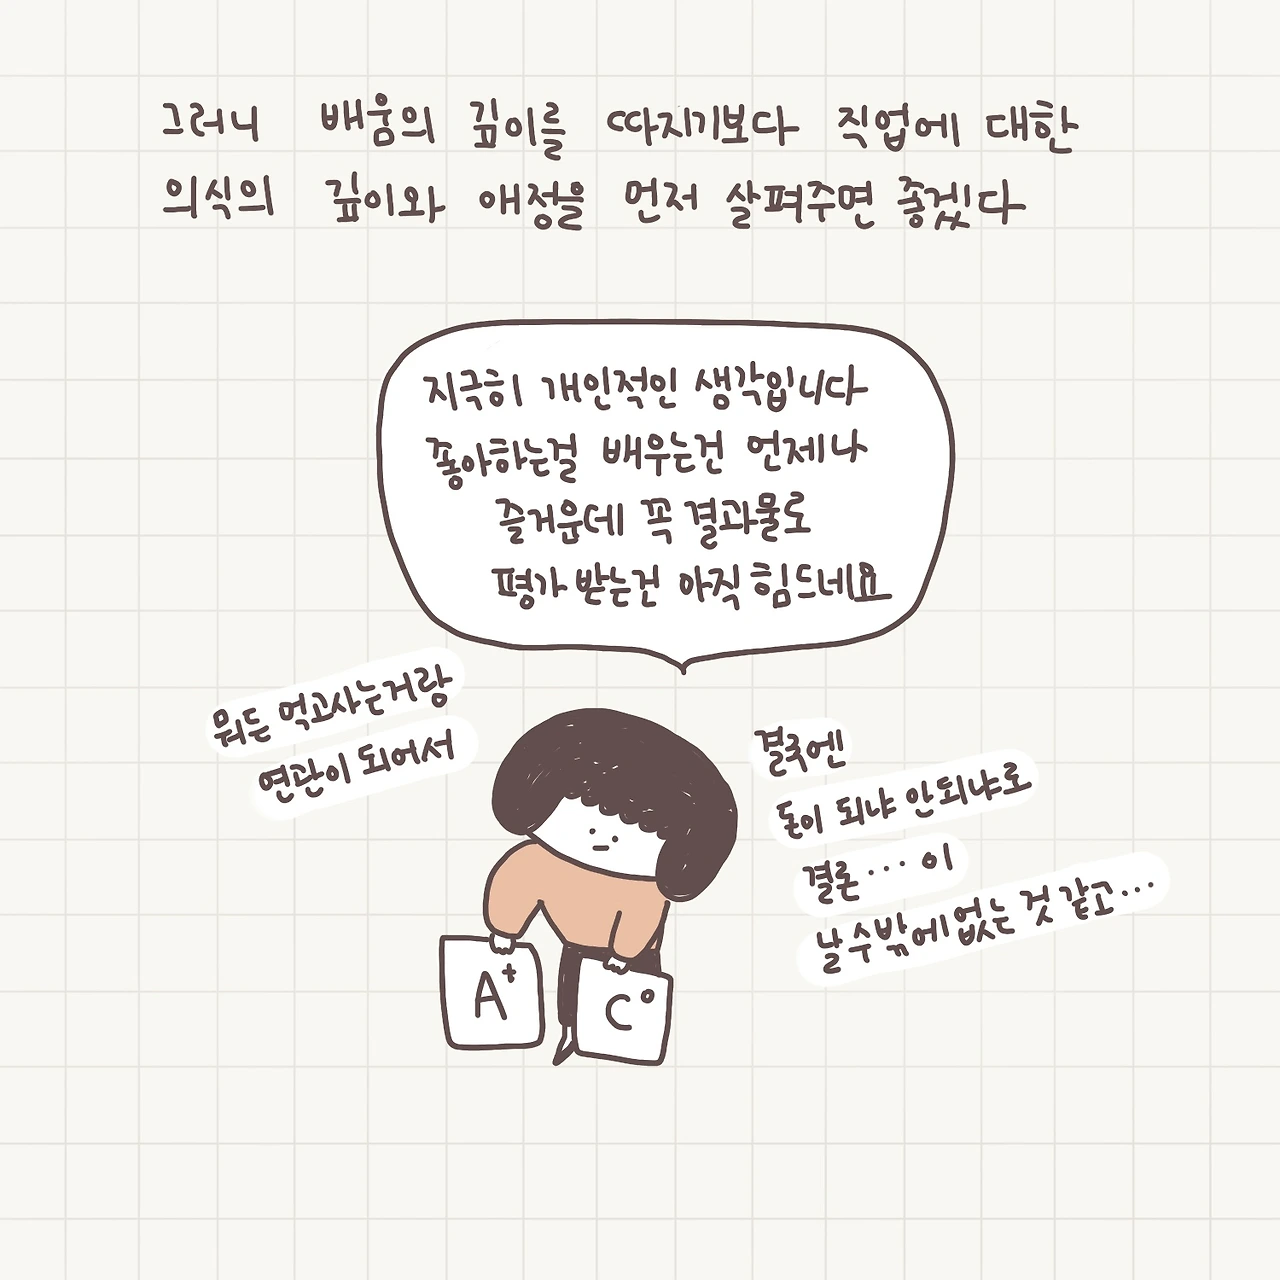 그러니 배움의 깊이를 따지기보다 직업에 대한
의식의 깊이와 애정을 먼저 살펴주면 좋겠다
지극히 개인적인 생각입니다
좋아하는걸 배우는건 언제나
즐거운데 꼭 결과물로
평가 받는건 아직 힘드네요
뭐든 먹고사는거랑
연관이 되어서
결국엔
돈이 되냐 안되냐로
결론… 이
날 수밖에없는 것 같고…
A+
C°